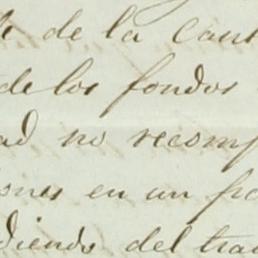 de la cant
de los fondos
ad no recomp
ones en un pa
diendo del tra